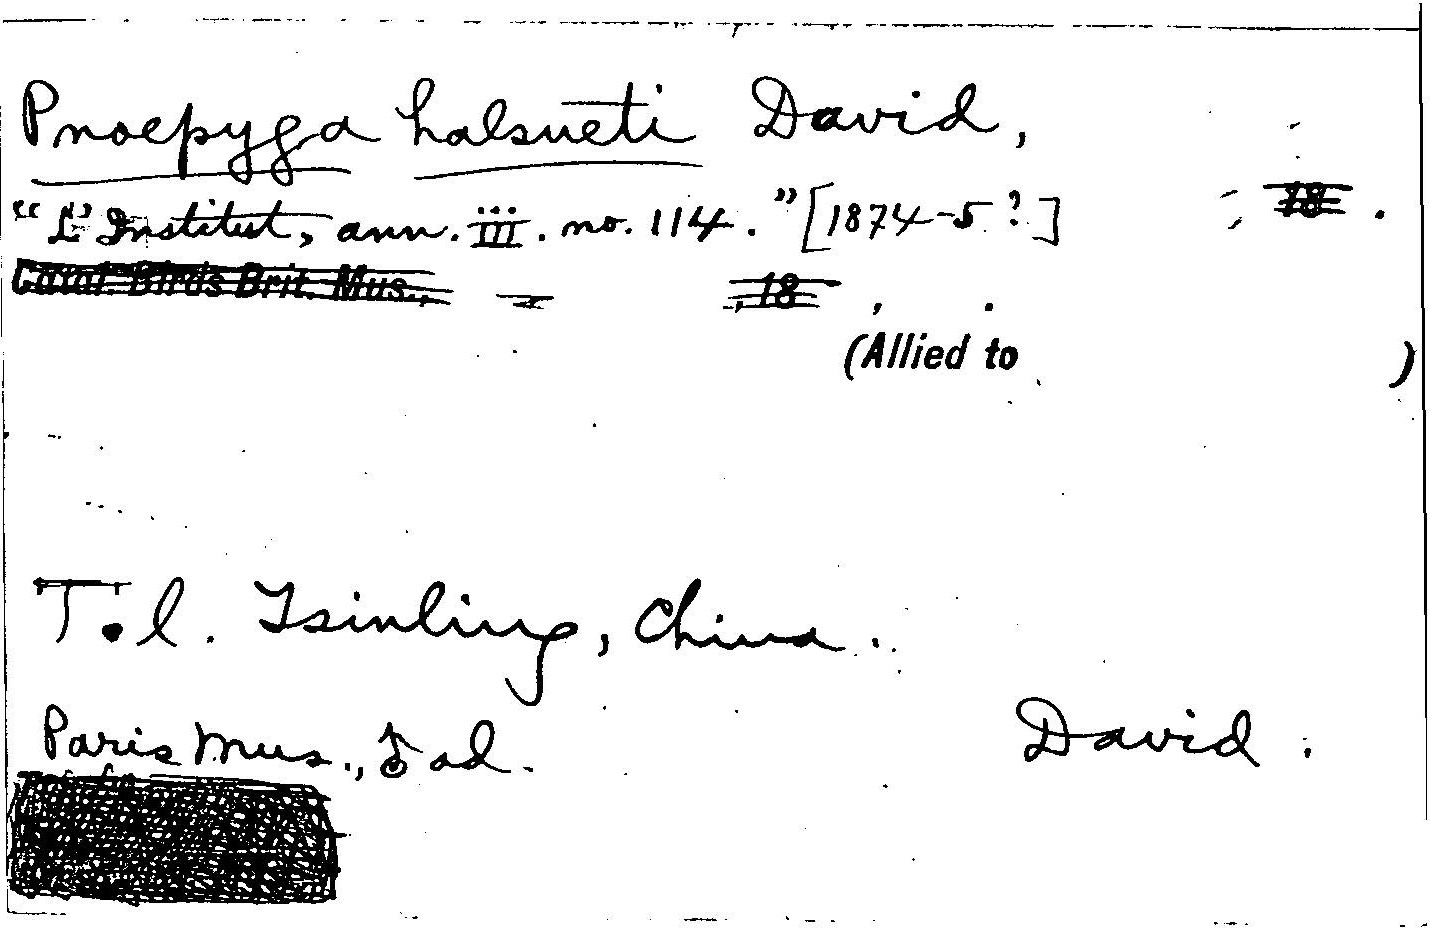 Pnoepyga halsueti David,
"L'Institut, ann. iii. no. 114." [1874-5?] 18 .
Catal. Birds Brit. Mus., , 18 , .
(Allied to )
T.l. Tsinling, China.
Paris Mus., ♂ ad. David.